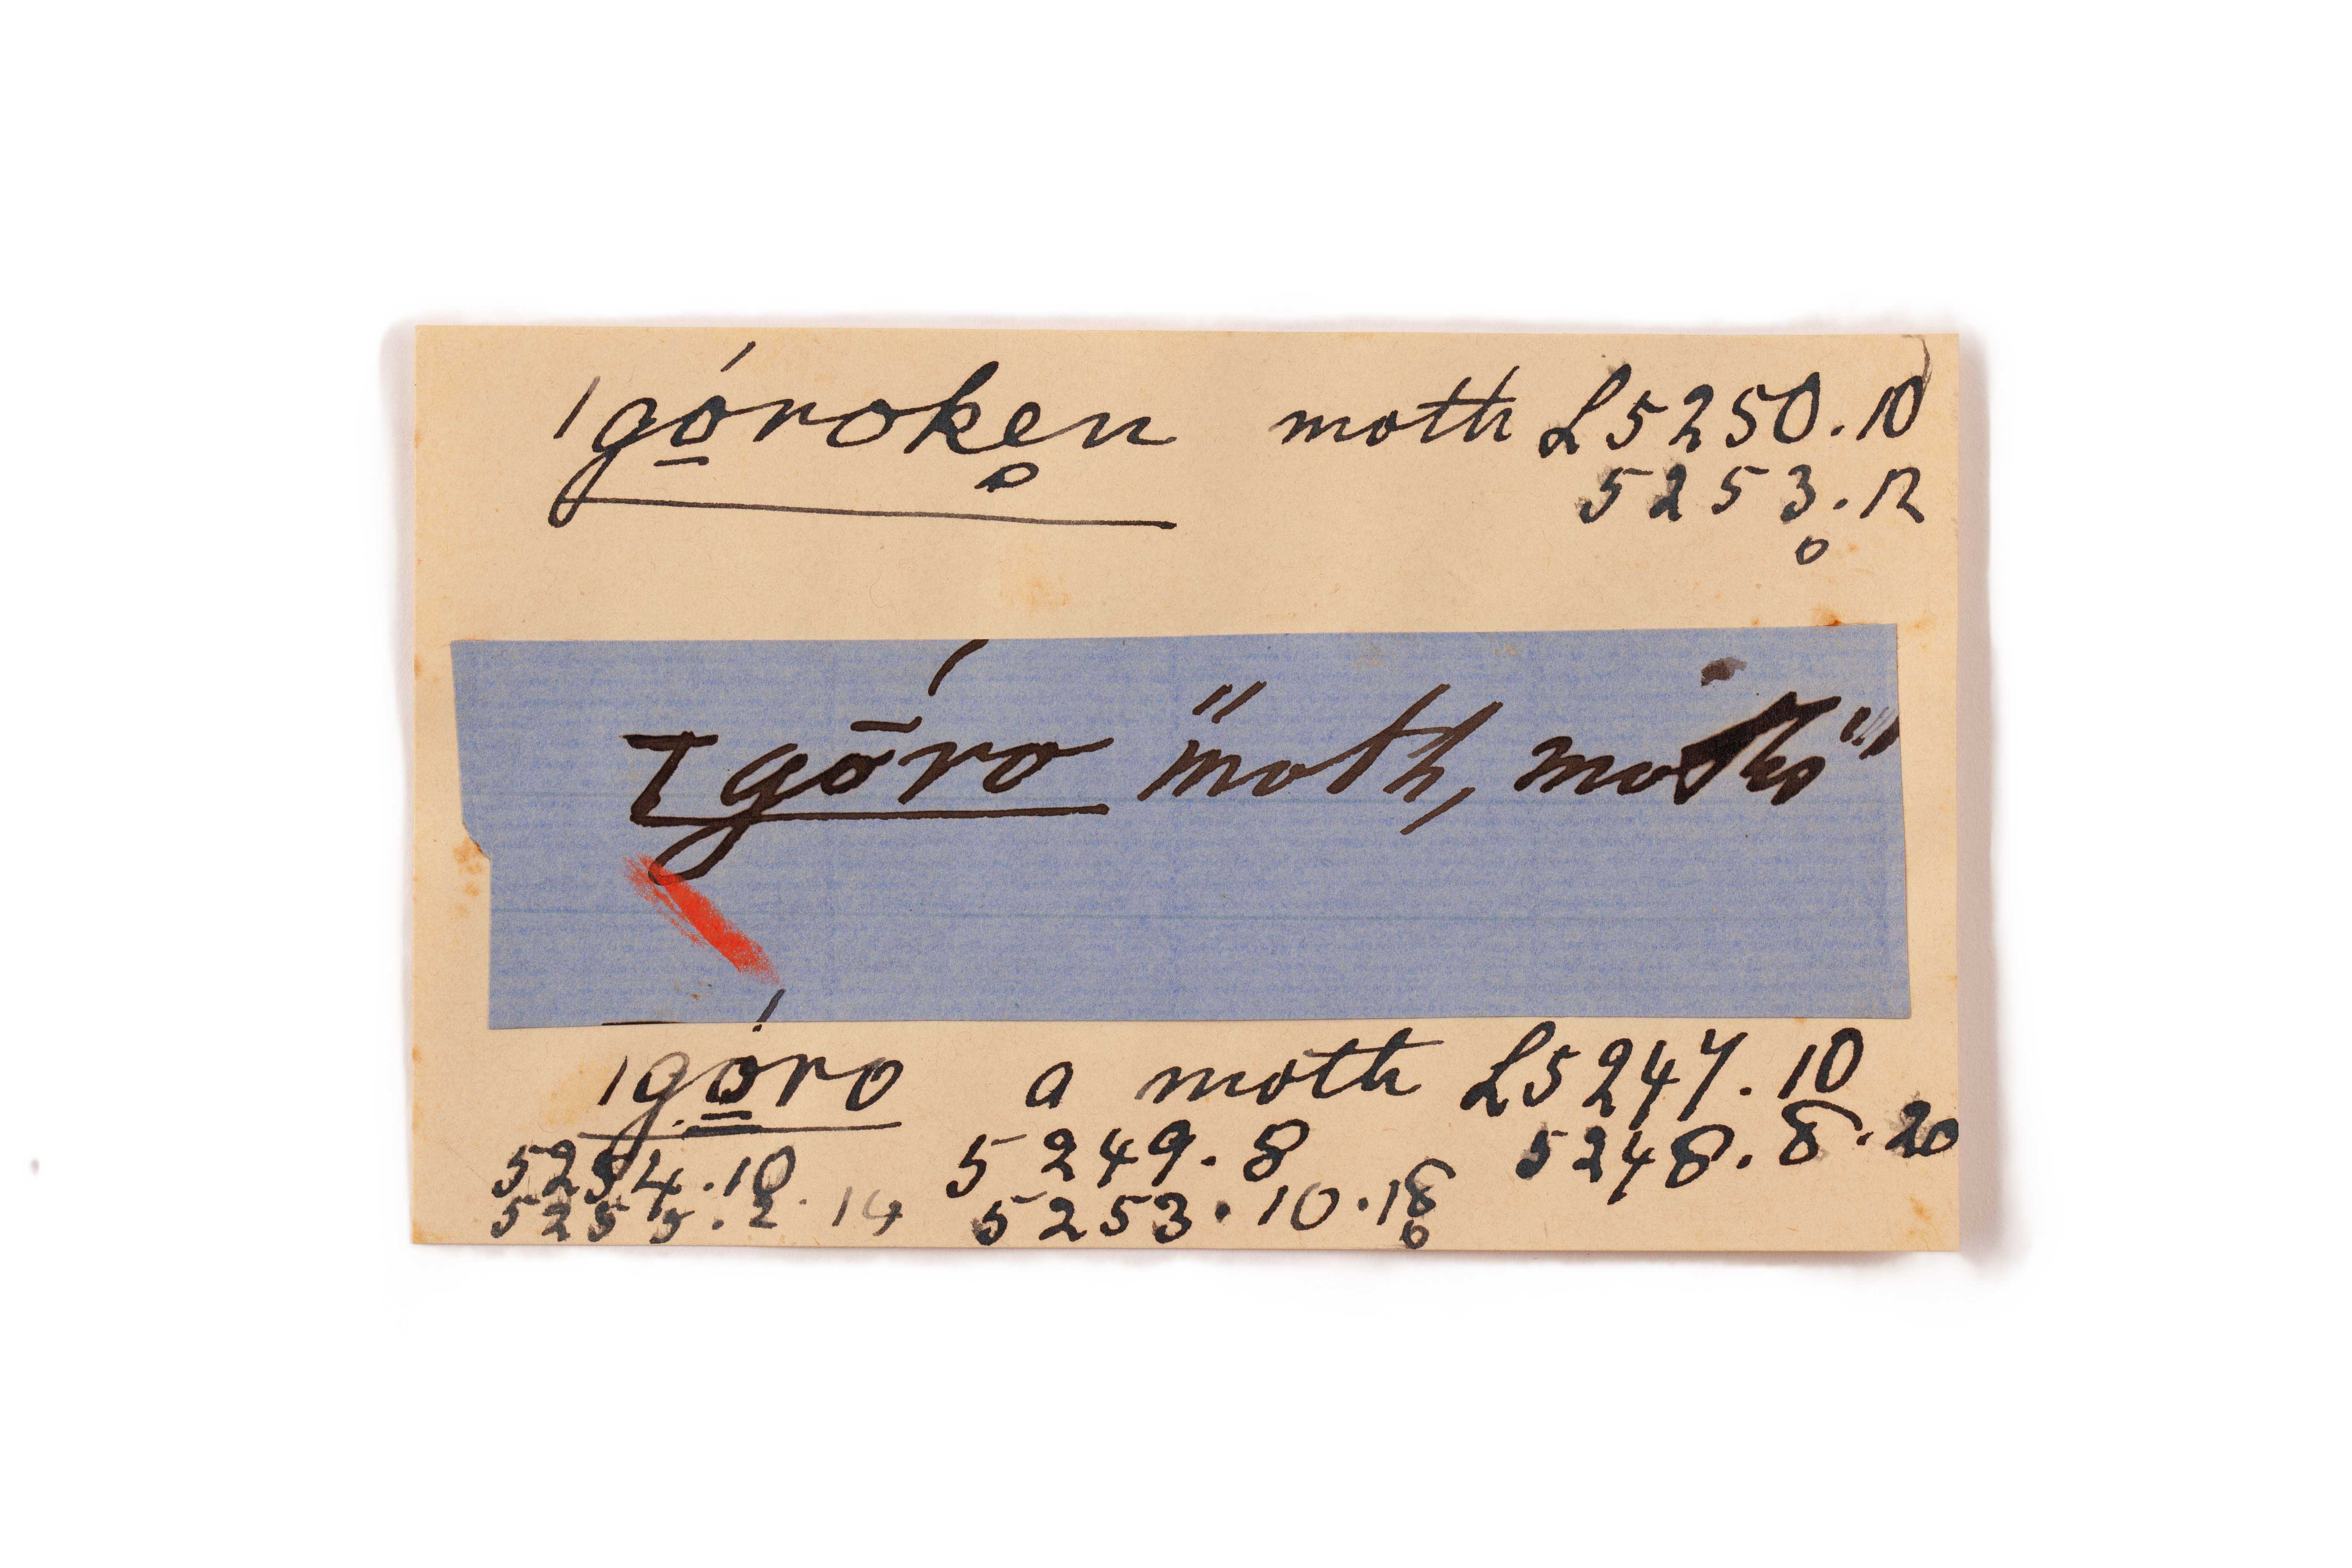 |gó̠roken moth L5250.10
5253.12
o
ꟾgṓro "moth, moths"
|gó̠ro a moth L5247.10
5254.10 5249.8 5248.8.20
5255.2.14 5253.10.18
o